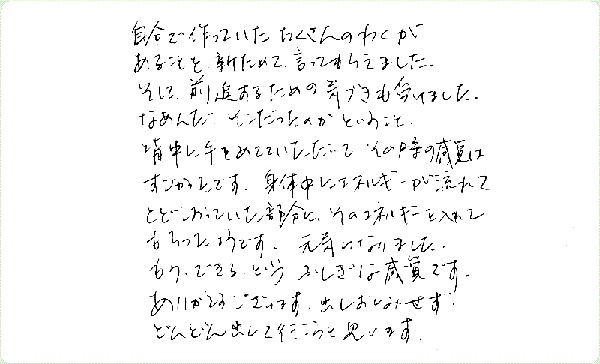 自分で作っていた たくさんのわくが
あることを、新ためて、言ってもらえました。
そして、前進するための気づきも受けました。
なあんだ そこだったのか ということ。
背中に手をあてていただいて その時の感覚は
すごかったです。身体中にエネルギーが流れて
とどこおっていた部分に、そのエネルギーを入れて
もらったようです。元気になりました。
もう、できる、という ふしぎな感覚です。
ありがとうございます。出しおしみせず、
どんどん出して行こうと思います。